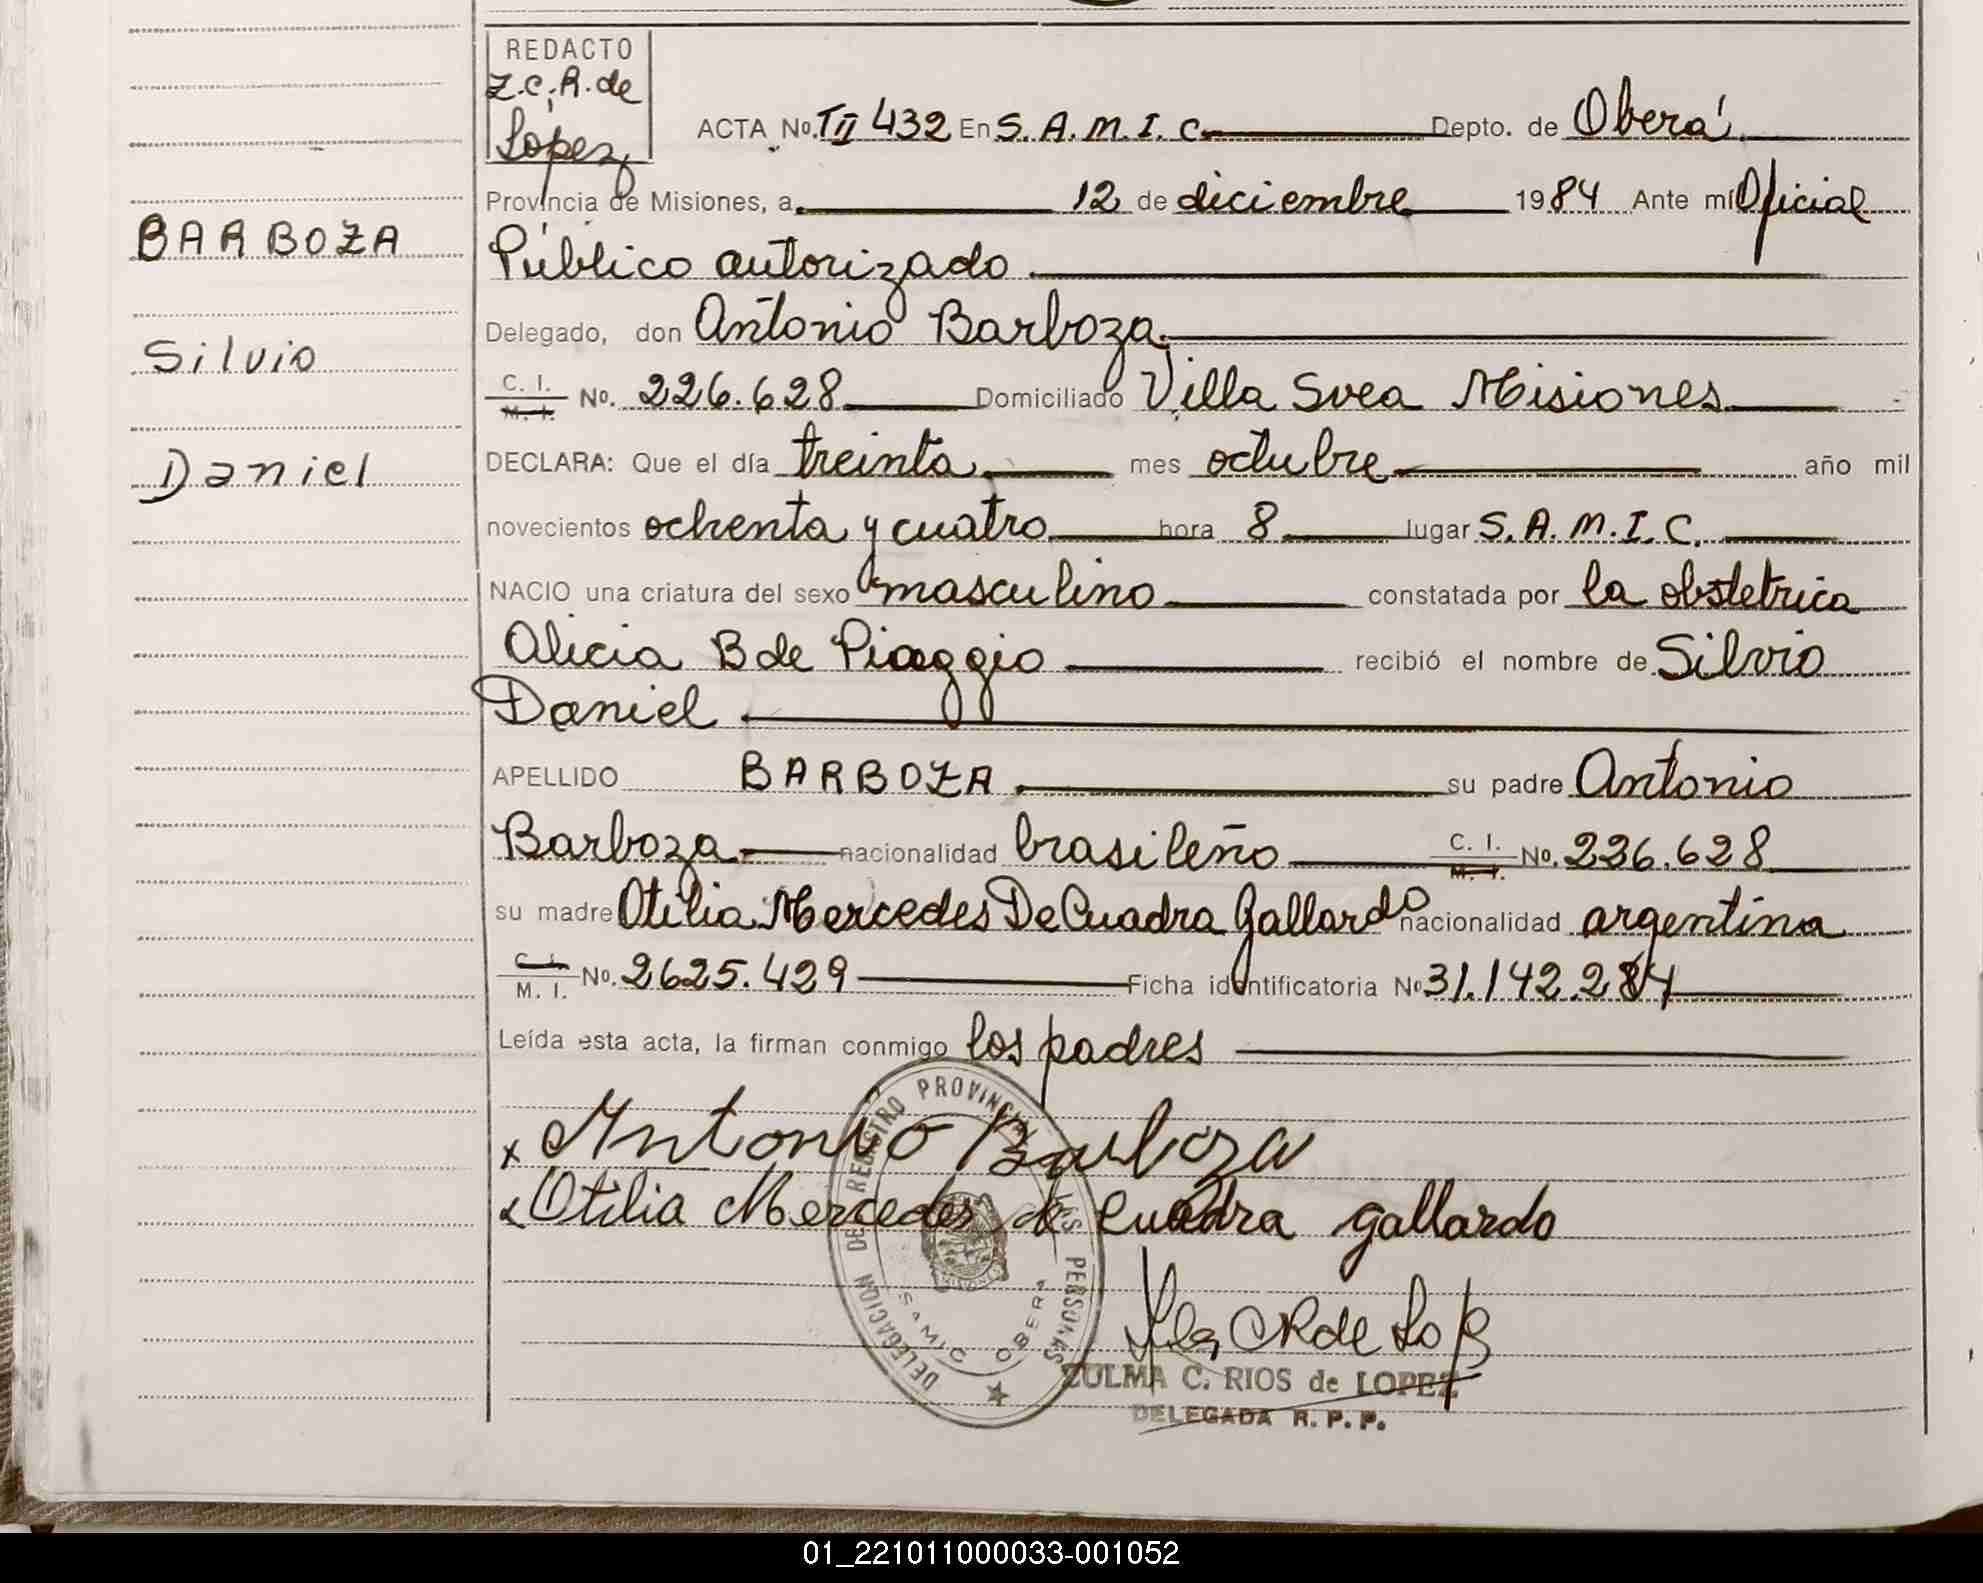 REDACTO
Z.C.R. de
López
ACTA No. TII 432 En S. A. M. I. C. Depto. de Oberá
Provincia de Misiones, a 12 de diciembre 1984 Ante mí Oficial
Público autorizado
Delegado, don Antonio Barboza
C. I. M. I. No. 226.628 Domiciliado Villa Svea Misiones
DECLARA: Que el día treinta mes octubre año mil
novecientos ochenta y cuatro hora 8 lugar S. A. M. I. C.
NACIO una criatura del sexo masculino constatada por la obstetrica
Alicia B de Piaggio recibió el nombre de Silvio
Daniel
APELLIDO BARBOZA su padre Antonio
Barboza nacionalidad brasileño C. I. M. I. No. 226.628
su madre Otilia Mercedes De Cuadra Gallardo nacionalidad argentina
C. I. M. I. No. 2625.429 Ficha identificatoria No 31.142.284
Leída esta acta, la firman conmigo los padres
x Antonio Barboza
x Otilia Mercedes de Cuadra gallardo
DELEGACION DE REGISTRO PROVINCIAL LAS PERSONAS
SAMIC OBERA
ZULMA C. RIOS de LOPEZ
DELEGADA R. P. P.
BARBOZA
Silvio
Daniel
01_221011000033-001052